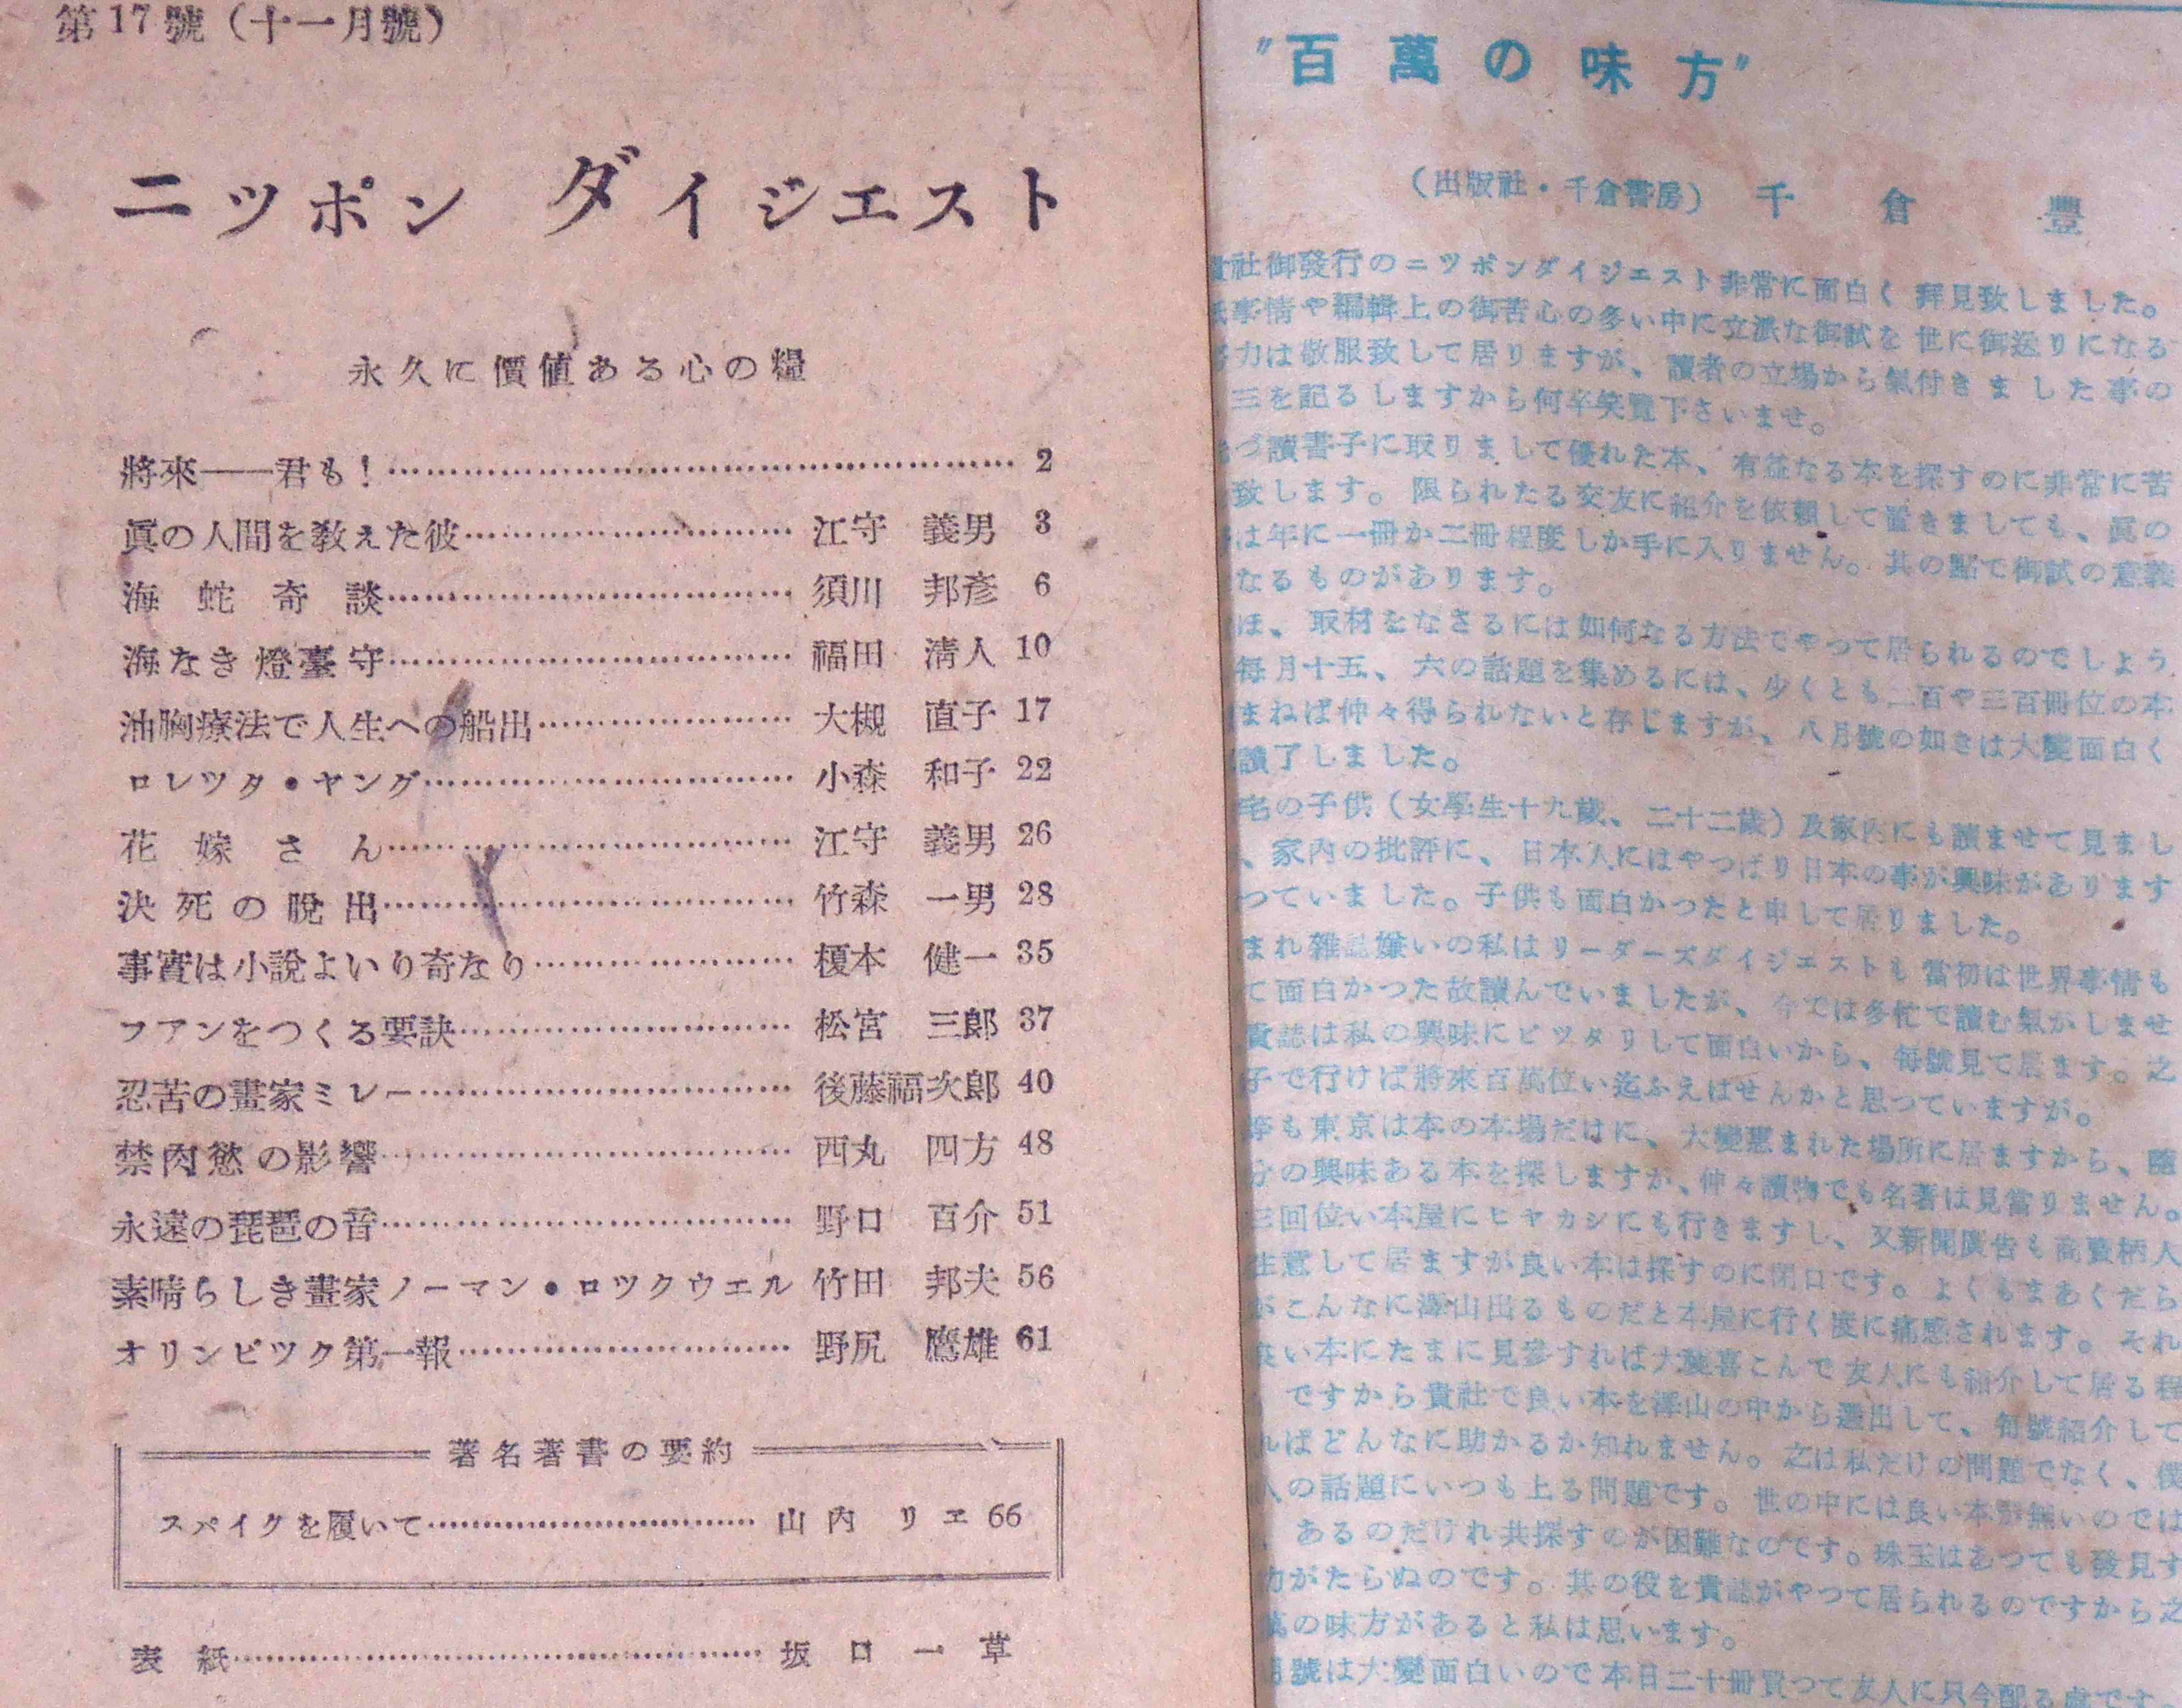 第17號（十一月號）
ニツポン ダイジエスト
永久に價値ある心の糧
將來――君も！…………2
眞の人間を教えた彼…………江守 義男 3
海蛇奇談…………須川 邦彦 6
海なき燈臺守…………福田 淸人 10
油胸療法で人生への船出…………大槻 直子 17
ロレツタ・ヤング…………小森 和子 22
花嫁さん…………江守 義男 26
決死の脫出…………竹森 一男 28
事實は小說よいり奇なり…………榎本 健一 35
フアンをつくる要訣…………松宮 三郎 37
忍苦の畫家ミレー…………後藤福次郎 40
禁肉慾の影響…………西丸 四方 48
永遠の琵琶の音…………野口 百介 51
素晴らしき畫家ノーマン・ロツクウエル 竹田 邦夫 56
オリンピツク第一報…………野尻 鷹雄 61
著名著書の要約
スパイクを履いて…………山内 リヱ 66
表紙…………坂口一草
"百萬の味方"
（出版社・千倉書房） 千倉 豐
社御發行のニツポンダイジエスト非常に面白く拜見致しました。
事情や編輯上の御苦心の多い中に立派な御試を世に御送りになる
力は敬服致して居りますが、讀者の立場から氣付きました事の
三を記るしますから何卒笑覽下さいませ。
づ讀書子に取りまして優れた本、有益なる本を探すのに非常に苦
致します。限られたる交友に紹介を依賴して置きましても、眞の
は年に一冊か二冊程度しか手に入りません。其の點で御試の意義
なるものがあります。
ほ、取材をなさるには如何なる方法でやつて居られるのでしよう
每月十五、六の話題を集めるには、少くとも二百や三百冊位の本
まねば仲々得られないと存じますが、八月號の如きは大變面白く
讀了しました。
宅の子供（女學生十九歲、二十二歲）及家內にも讀ませて見まし
、家內の批評に、日本人にはやつぱり日本の事が興味があります
つていました。子供も面白かつたと申して居りました。
まれ雜誌嫌いの私はリーダーズダイジエストも當初は世界事情も
て面白かつた故讀んでいましたが、今では多忙で讀む氣がしませ
貴誌は私の興味にピツタリして面白いから、每號見て居ます。之
子で行けば將來百萬位い迄ふえはせんかと思つていますが。
等も東京は本の本場だけに、大變惠まれた場所に居ますから、隨
分の興味ある本を探しますが、仲々讀物でも名著は見當りません。
三回位い本屋にヒヤカシにも行きますし、又新聞廣告も商賣柄人
注意して居ますが良い本は探すのに閉口です。よくもまあくだら
がこんなに澤山出るものだと本屋に行く度に痛感されます。それ
良い本にたまに見參すれば大變喜こんで友人にも紹介して居る程
ですから貴社で良い本を澤山の中から選出して、每號紹介して
ればどんなに助かるか知れません。之は私だけの問題でなく、僕
人の話題にいつも上る問題です。世の中には良い本が無いのでは
、あるのだけれ共探すのが困難なのです。珠玉はあつても發見す
力がたらぬのです。其の役を貴誌がやつて居られるのですから之
萬の味方があると私は思います。
月號は大變面白いので本日二十冊買つて友人に只今配る處です